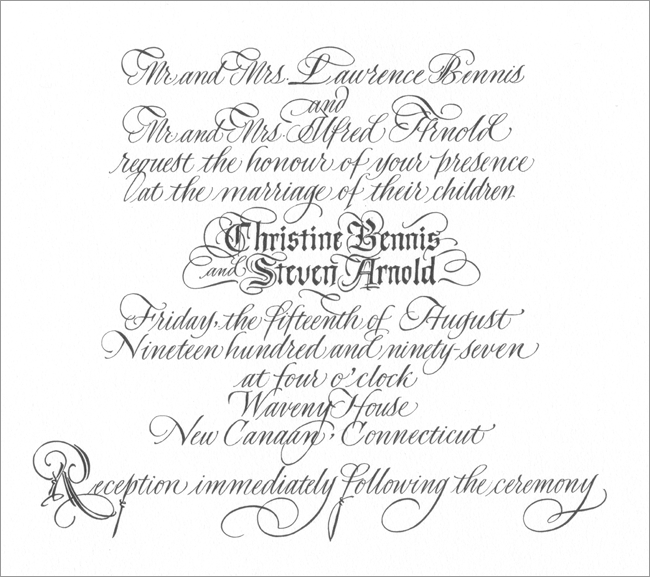 Mr. and Mrs. Lawrence Bennis
and
Mr. and Mrs. Alfred Arnold
request the honour of your presence
at the marriage of their children
Christine Bennis
and Steven Arnold
Friday, the fifteenth of August
Nineteen hundred and ninety-seven
at four o'clock
Waveny House
New Canaan, Connecticut
Reception immediately following the ceremony